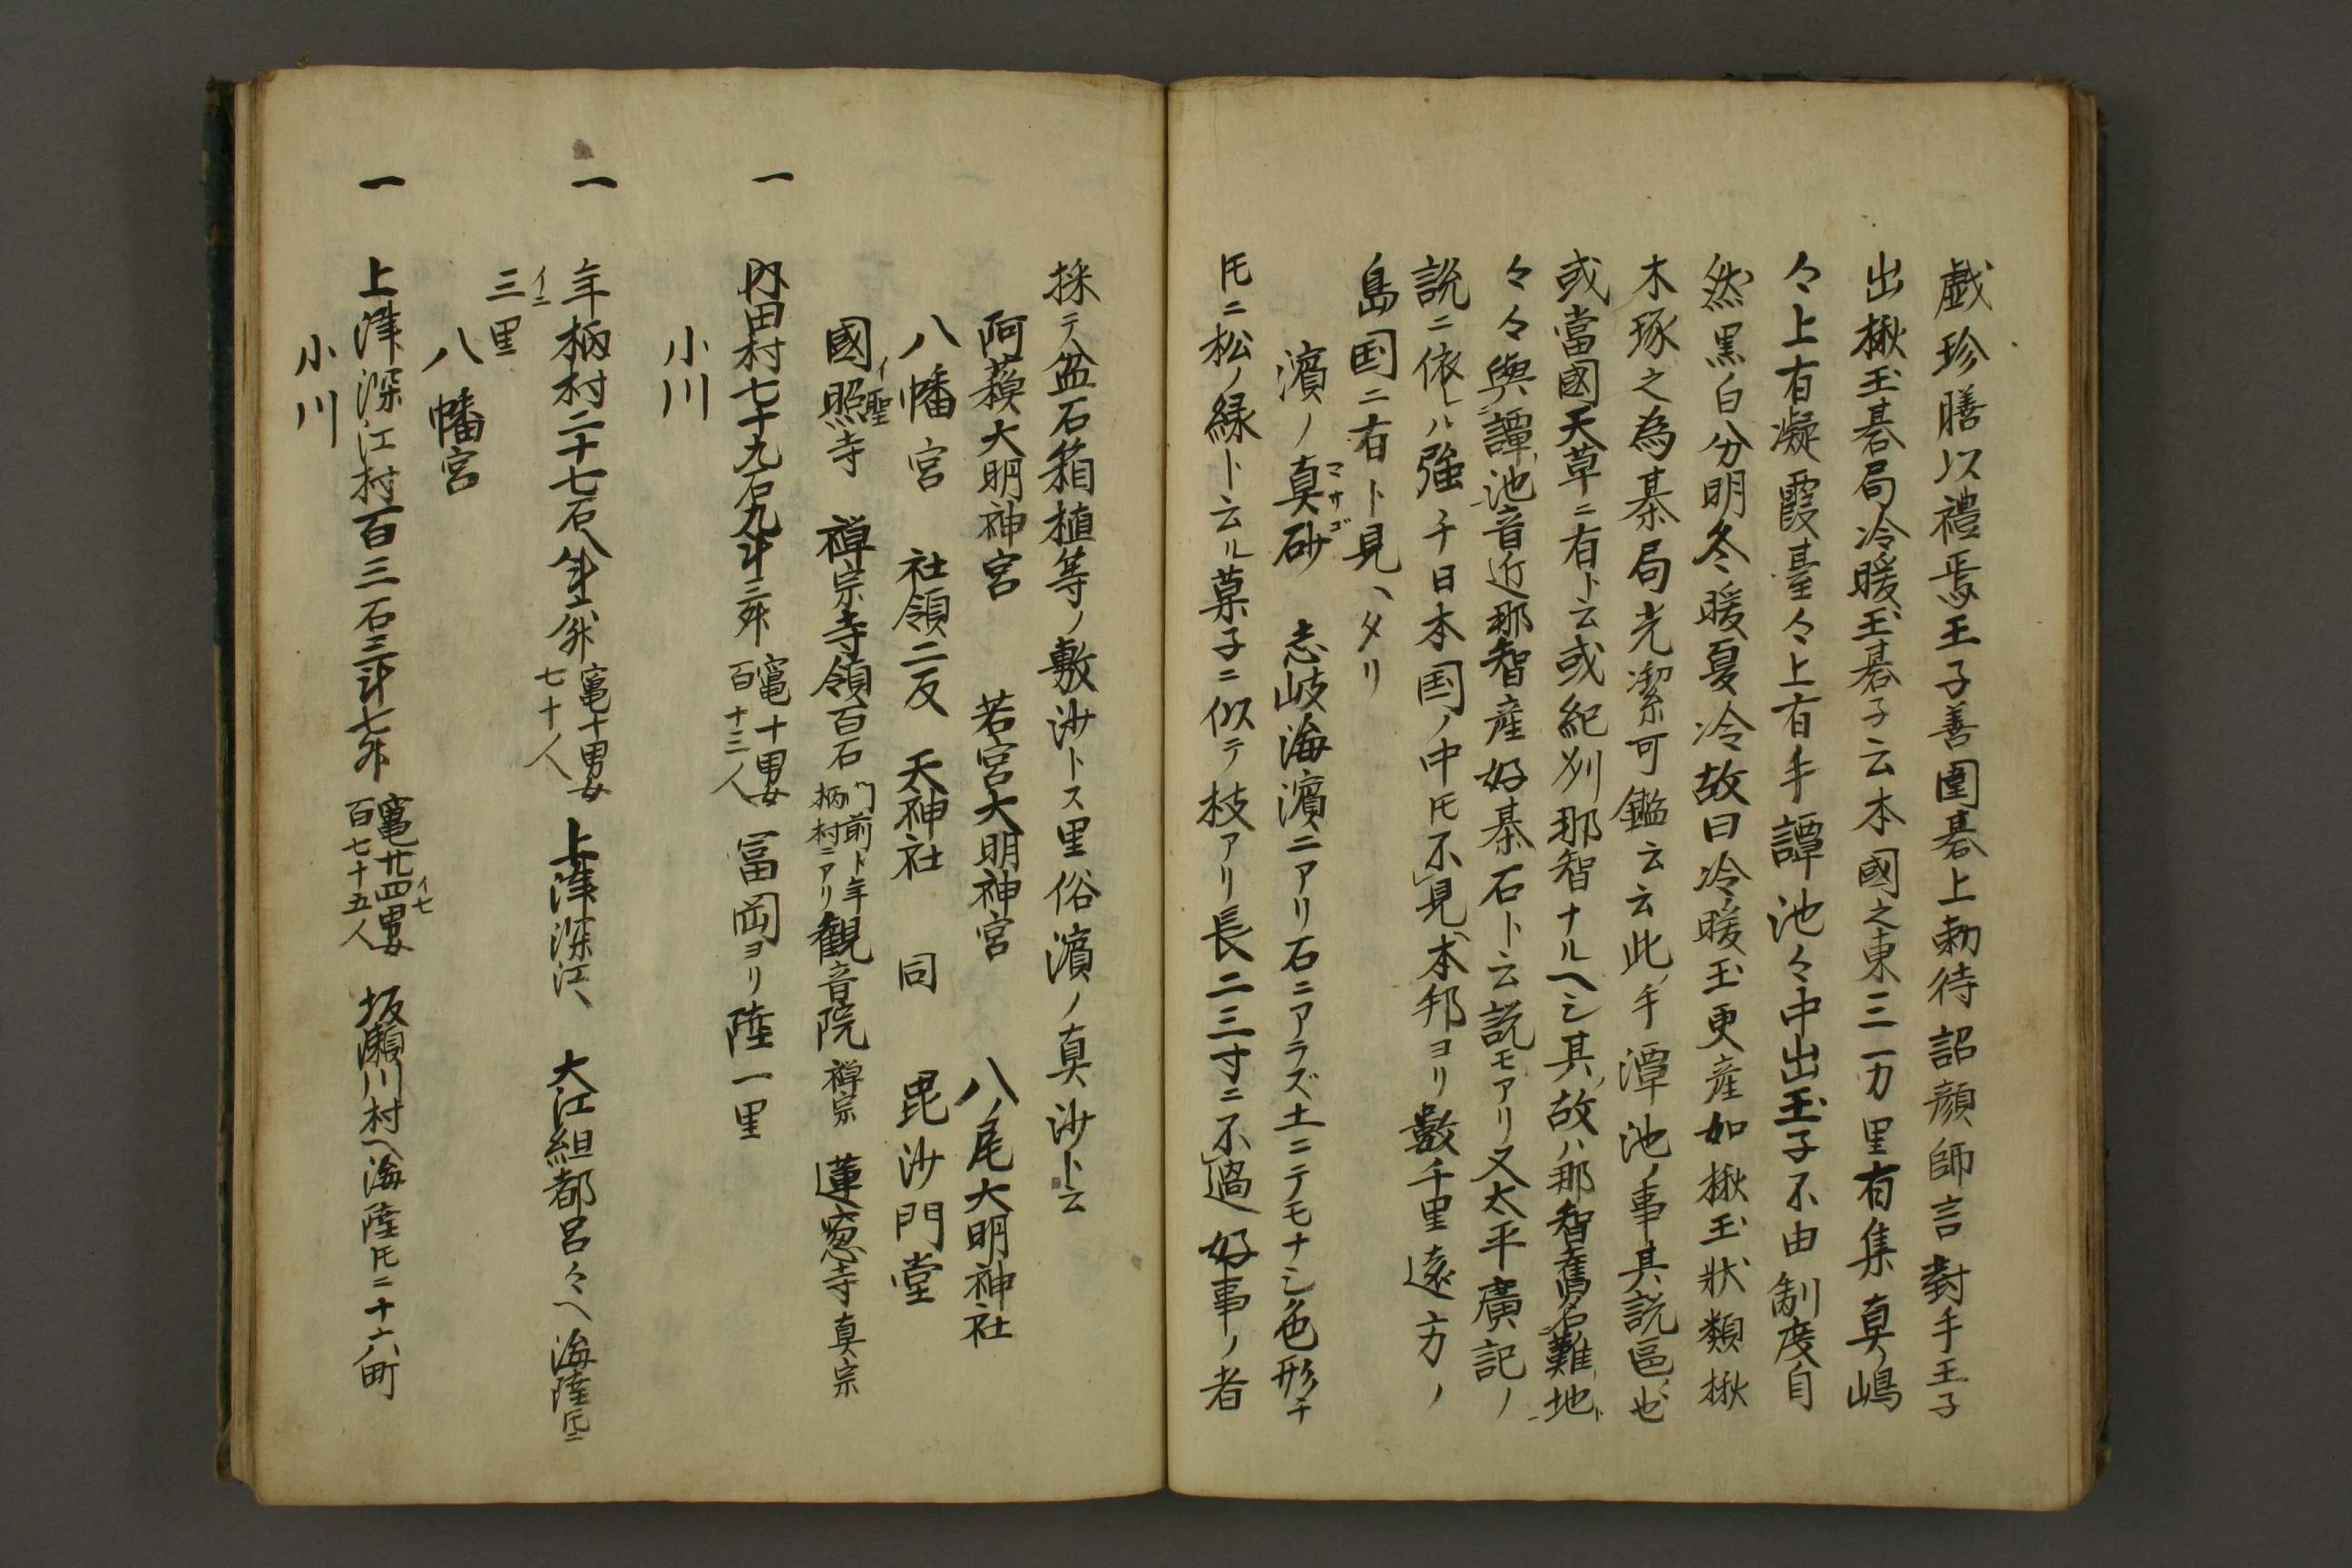 戯珍膳以禮焉王子善圍碁上勅待詔顔師言對手王子
出楸玉碁局冷暖玉碁子云本國之東三万里有集真嶋
々上有凝霞臺々上有手譚池々中出玉子不由制度自
然黒白分明冬暖夏冷故曰冷暖玉更産如楸玉状類楸
木琢之為棊局光潔可鑑云云此ノ手潭池ノ事其説區也
或當國天草ニ有ト云或紀刕那智ナルヘシ其故ハ那智舊名難地ト
々々與譚池音近那智産好棊石ト云説モアリ又太平廣記ノ
説ニ依レハ強チ日本国ノ中ニ不見本邦ヨリ數千里遠方ノ
島国ニ有ト見ヘタリ
濱ノ真砂 志岐海濱ニアリ石ニアラズ土ニテモナシ色形チ
マサゴ
氏ニ松ノ緑ト云ル菓子ニ似テ枝アリ長二三寸ニ不過好事ノ者
採テ盆石箱植等ノ敷沙トス里俗濱ノ真沙ト云
阿蘓大明神宮 若宮大明神宮 八ノ尾大明神社
八幡宮 社領二反 天神社 同 毘沙門堂
國照寺 禅宗寺領百石 門前ト年柄村ニアリ 観音院 禅宗 蓮窓寺 真宗
イ聖
一 内田村七十九石九斗三升 竃十男女百十三人 冨岡ヨリ陸一里
小川
一 年柄村二十七石八斗六升 竃十男女七十人 上津深江ヘ 大江組都呂々ヘ海陸氏ニ
イニ
三里
八幡宮
一 上津深江村百三石三斗七升 竃廿四男女百七十五人 坂瀬川村ヘ海陸氏ニ十六町
イ七
小川